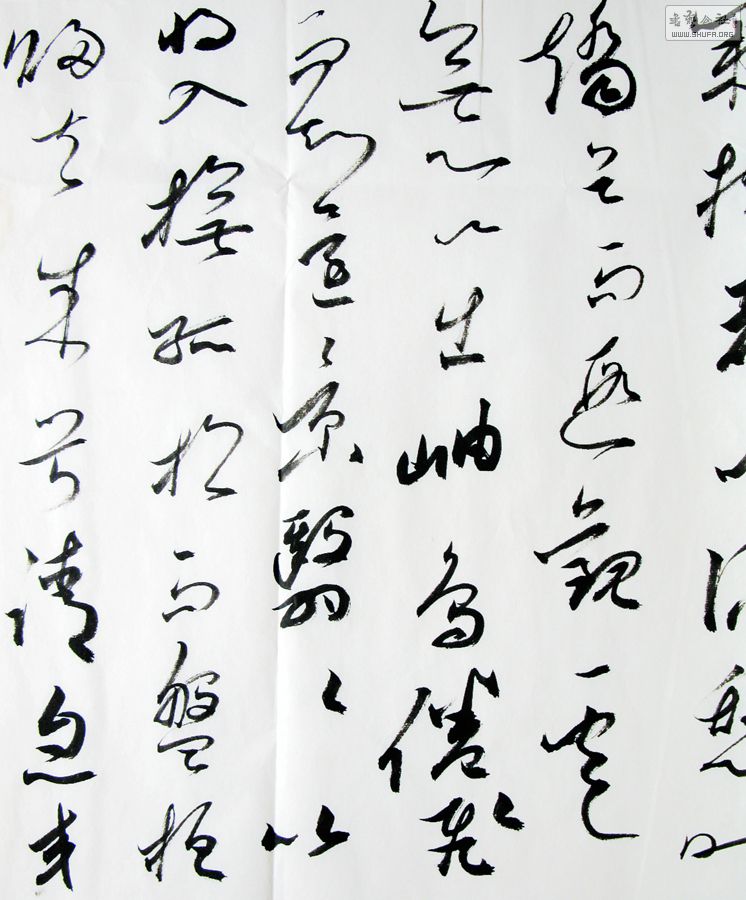 書法公社
WWW.SHUFA.ORG
策扶老以流憩時
矯首而遐觀雲
無心以出岫鳥倦飛
而知還景翳翳以
將入撫孤松而盤桓
歸去來兮請息交